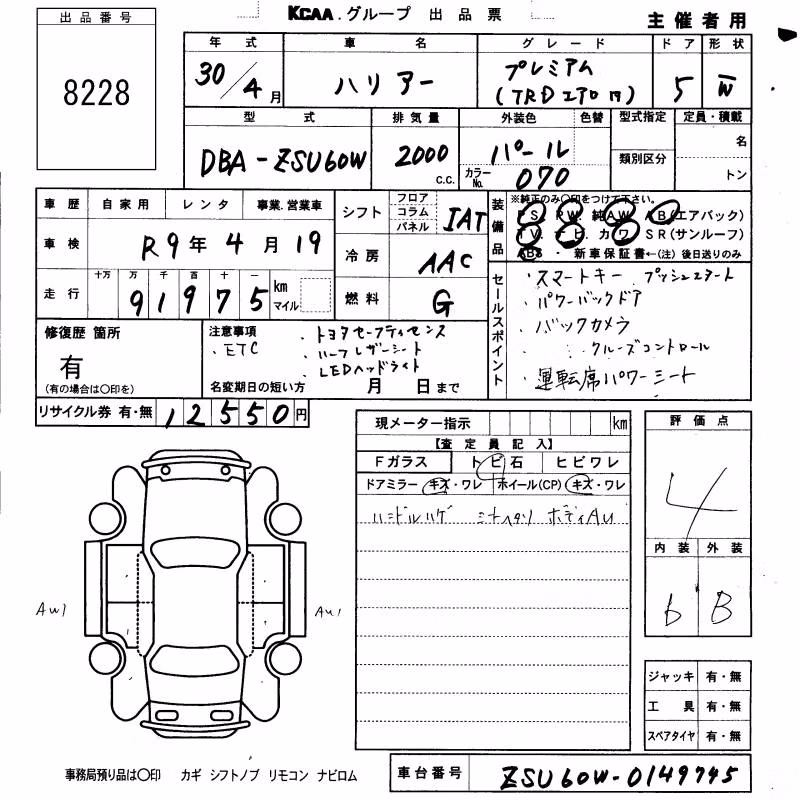 出品番号
8228
KCAA.グループ 出品票
主催者用
年式 車名 グレード ドア 形状
30/4月 ハリアー プレミアム 5 W
(TRDエアロ付)
型式 排気量 外装色 色替 型式指定 定員・積載
DBA-ZSU60W 2000c.c. パール 名
類別区分
カラーNo. 070 トン
車歴 自家用 レンタ 事業.営業車
車検 R9年4月19
走行 十万 万 千 百 十 一
91975 km マイル
シフト フロア コラム パネル IAT
冷房 AAC
燃料 G
装備品
※純正のみ○印をつけて下さい。
PS PW 純AW AB(エアバック)
TV ナビ カワ SR(サンルーフ)
ABS ・ 新車保証書←(注)後日送りのみ
セールスポイント
・スマートキー プッシュスタート
・パワーバックドア
・バックカメラ
・クルーズコントロール
・運転席パワーシート
修復歴 箇所
有
(有の場合は○印を)
注意事項
・ETC
・トヨタセーフティセンス
・ハーフレザーシート
・LEDヘッドライト
名変期日の短い方 月 日まで
リサイクル券 有・無 12550円
現メーター指示 km
【査定員記入】
Fガラス トビ石 ヒビワレ
ドアミラー キズ・ワレ ホイール(CP) キズ・ワレ
ハンドルハゲ シートヘタリ ボディAU
評価点
4
内装 外装
b B
AW1
AU1
ジャッキ 有・無
工具 有・無
スペアタイヤ 有・無
事務局預り品は○印 カギ シフトノブ リモコン ナビロム
車台番号 ZSU60W-0149745